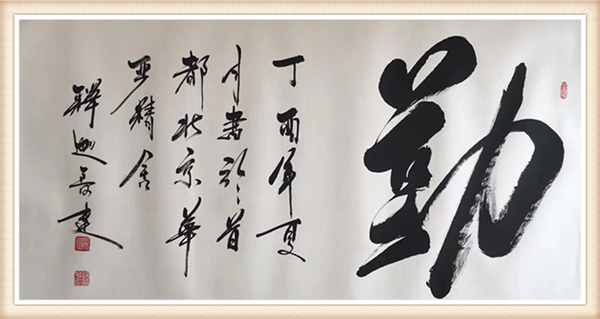 勤
丁酉年夏
月書於首
都北京華
亚精舍
釋 建